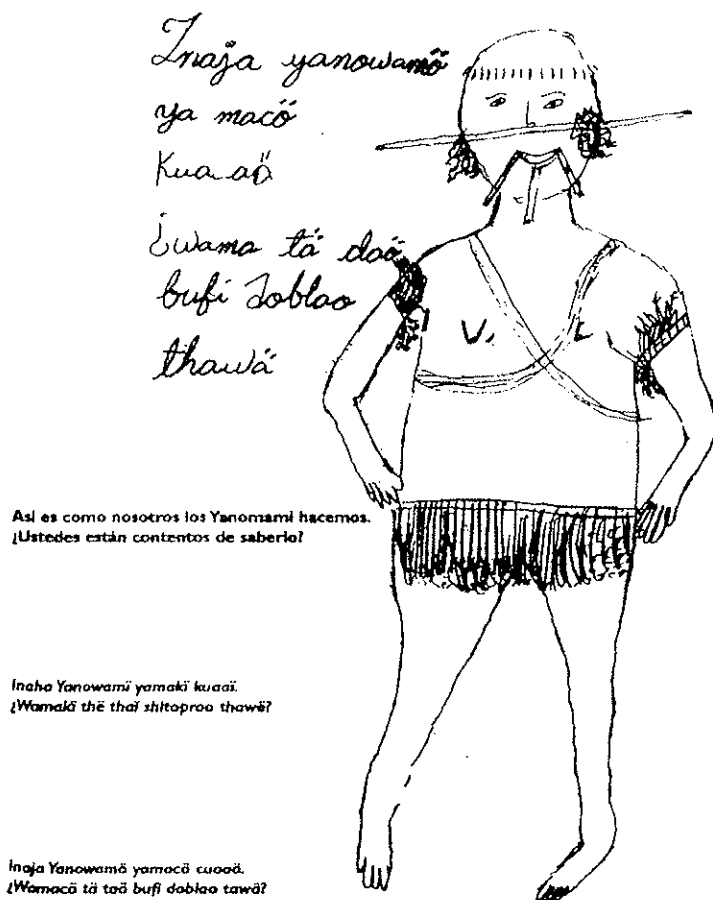 Inaja yanowamö
ya macö
Kua aö
¿wama tä daö
bufi doblao
thawä
Así es como nosotros los Yanomami hacemos.
¿Ustedes están contentos de saberlo?
Inaha Yanowamï yamakï kuaaï.
¿Wamakï thë thaï shitoprao thawë?
Inaja Yanowamö yamacö cuaaö.
¿Wamacö tä taö bufi doblao tawä?